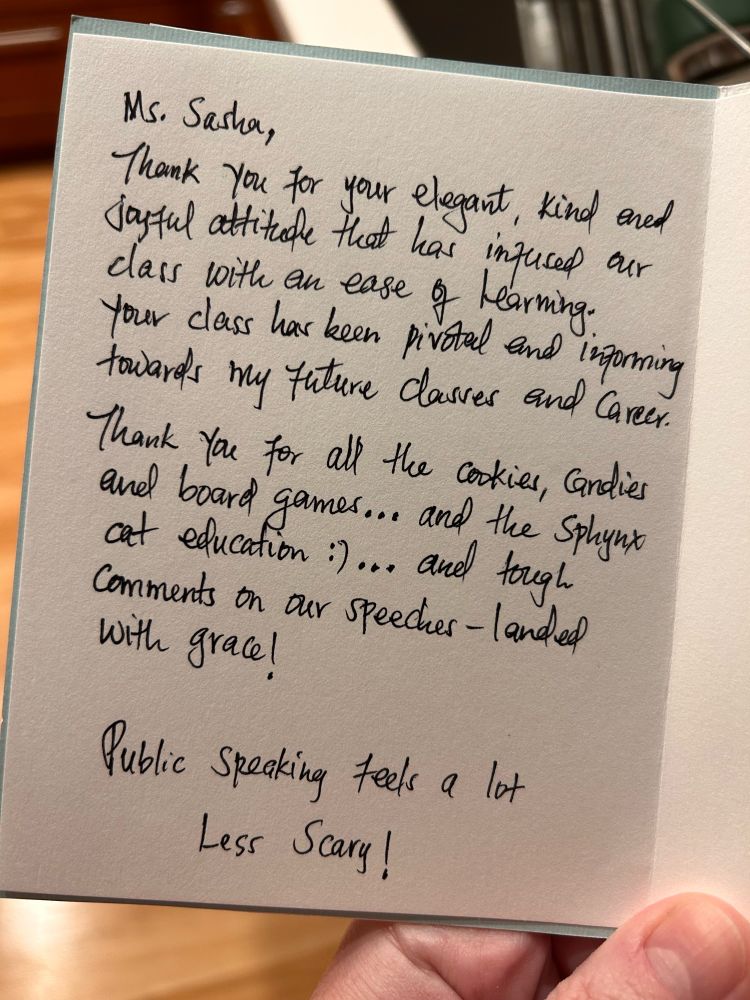 Ms. Sasha,
Thank you for your elegant, kind and
joyful attitude that has infused our
class with an ease of learning.
Your class has been pivotal and informing
towards my future classes and career.
Thank you for all the cookies, candies
and board games... and the Sphynx
cat education :)... and tough
comments on our speeches – landed
with grace!
Public speaking feels a lot
Less Scary!